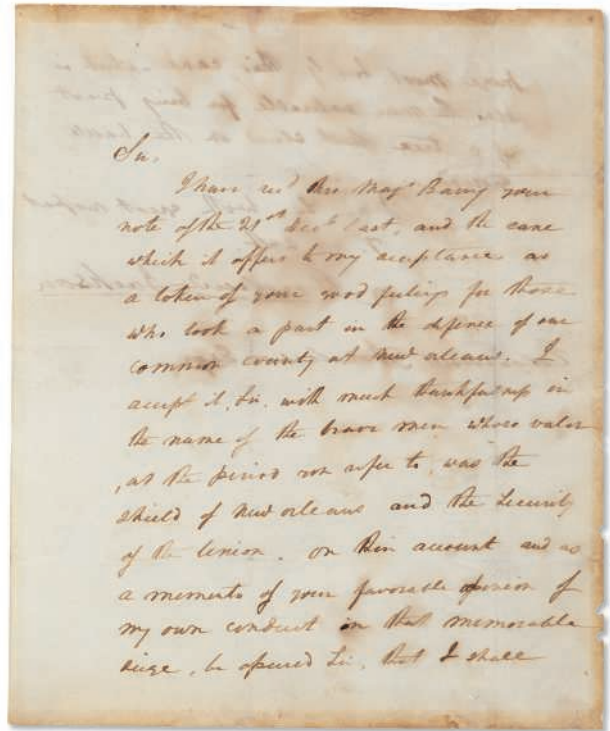 Sir,
I have recd thro Majr Barry your
note of the 21st Decbr last, and the cane
which it offers to my acceptance as
a token of your good feelings for those
who took a part in the defence of our
common country at New orleans. I
accept it, Sir, with much thankfulness in
the name of the brave men whose valor
, at the period you refer to, was the
shield of New orleans and the Security
of the Union. on this account and as
a memento of your favorable opinion of
my own conduct in that memorable
siege, be assured Sir, that I shall